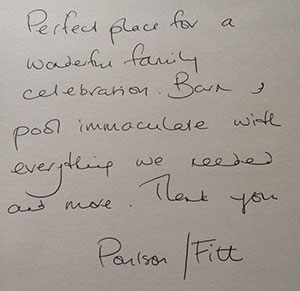 Perfect place for a
wonderful family
celebration. Barn &
pool immaculate with
everything we needed
and more. Thank you
Poulson / Fitt